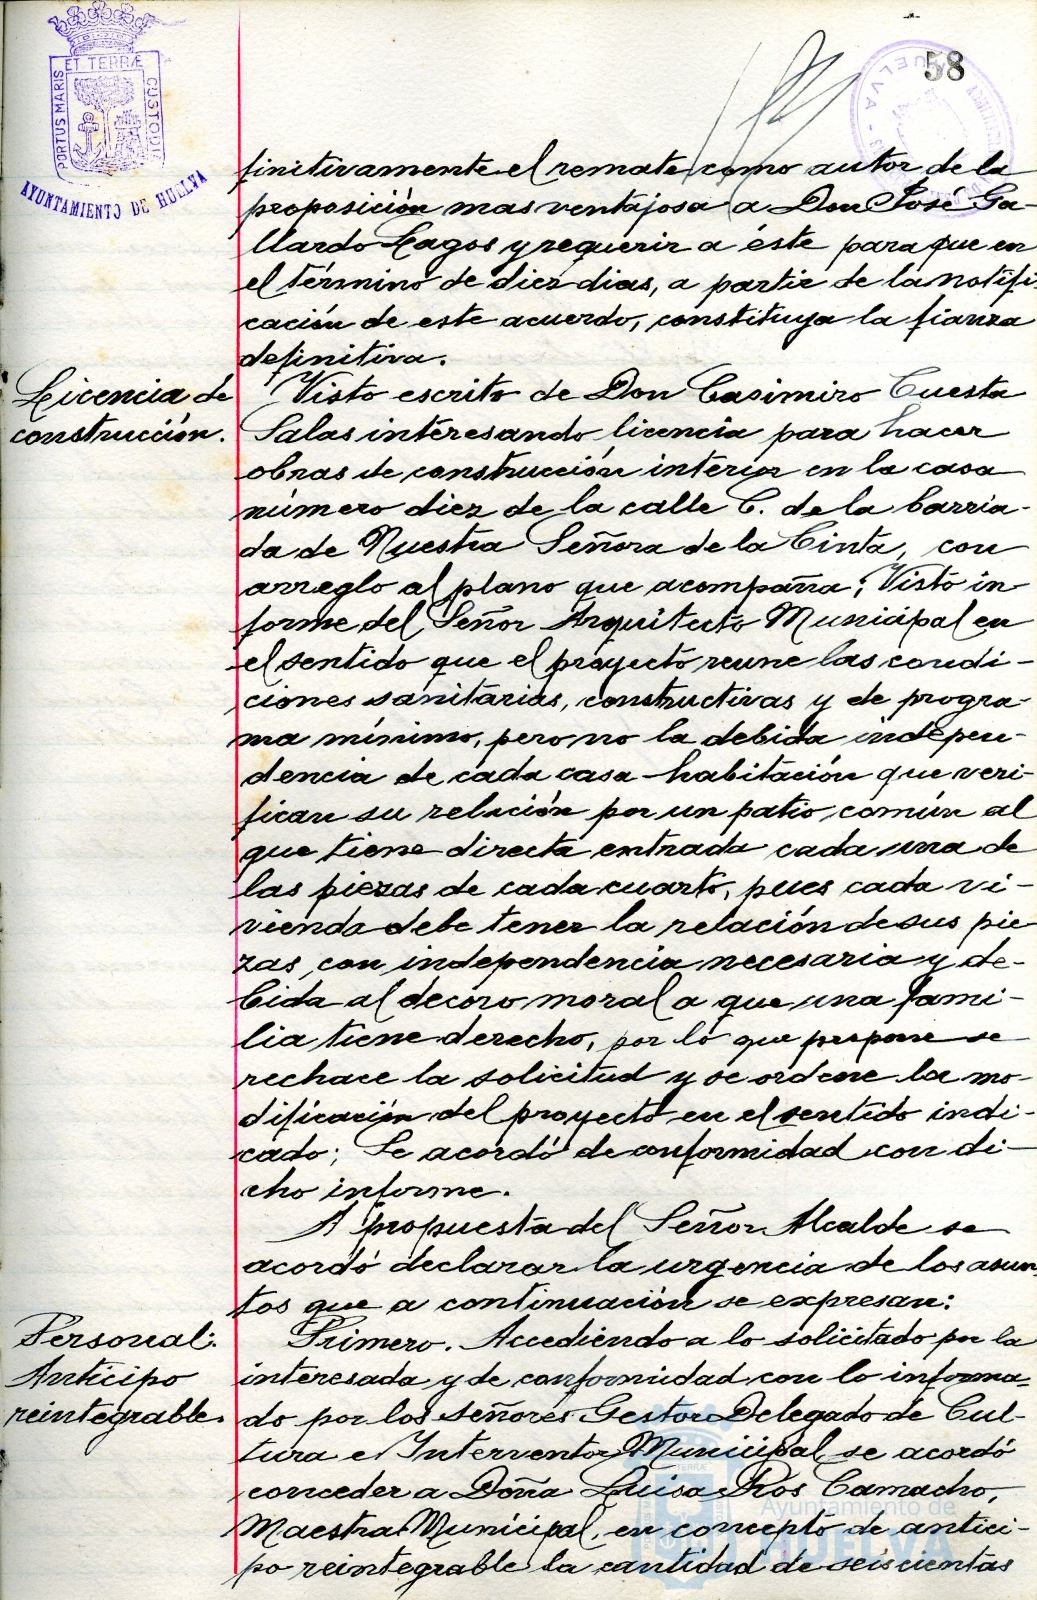 58
PORTUS MARIS
ET TERRÆ
CUSTODI
AYUNTAMIENTO DE HUELVA
HUELVA
finitivamente el remate como autor de la
proposición mas ventajosa a Don José Ga-
llardo Lagos y requerir a éste para que en
el término de diez dias, a partir de la notifi-
cación de este acuerdo, constituya la fianza
definitiva.
Licencia de
construcción.
Visto escrito de Don Casimiro Cuesta
Salas interesando licencia para hacer
obras de construcción interior en la casa
número diez de la calle C. de la barria-
da de Nuestra Señora de la Cinta, con
arreglo al plano que acompaña; Visto in-
forme del Señor Arquitecto Municipal en
el sentido que el proyecto reune las condi-
ciones sanitarias, constructivas y de progra-
ma mínimo, pero no la debida indepen-
dencia de cada casa-habitación que veri-
fican su relación por un patio común al
que tiene directa entrada cada una de
las piezas de cada cuarto, pues cada vi-
vienda debe tener la relación de sus pie
zas, con independencia necesaria y de-
bida al decoro moral a que una fami-
lia tiene derecho, por lo que propone se
rechace la solicitud y se ordene la mo-
dificación del proyecto en el sentido indi-
cado; Se acordó de conformidad con di-
cho informe.
A propuesta del Señor Alcalde se
acordó declarar la urgencia de los asun-
tos que a continuación se expresan:
Personal:
Anticipo
reintegrable.
Primero. Accediendo a lo solicitado por la
interesada y de conformidad con lo informa-
do por los señores Gestor Delegado de Cul-
tura e Interventor Municipal, se acordó
conceder a Doña Luisa Ros Camacho,
Maestra Municipal, en concepto de antici-
po reintegrable la cantidad de seiscientas
Ayuntamiento de
HUELVA